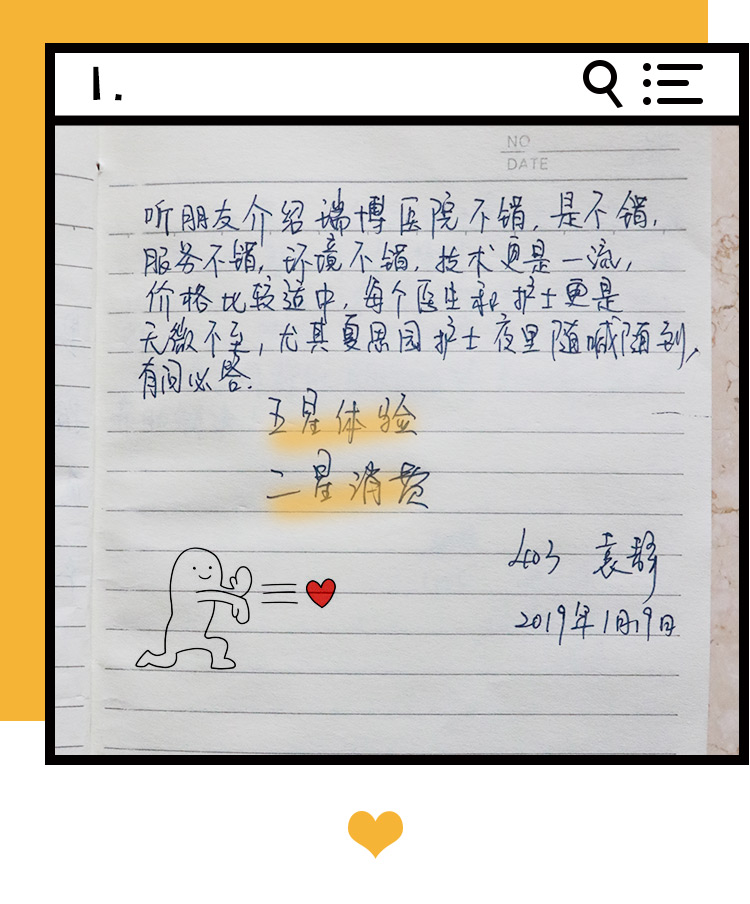 1.
NO
DATE
听朋友介绍瑞博医院不错，是不错，
服务不错，环境不错，技术更是一流，
价格比较适中，每个医生和护士更是
无微不至，尤其夏思园护士夜里随喊随到，
有问必答.
五星体验
二星消费
403 袁静
2019年1月19日